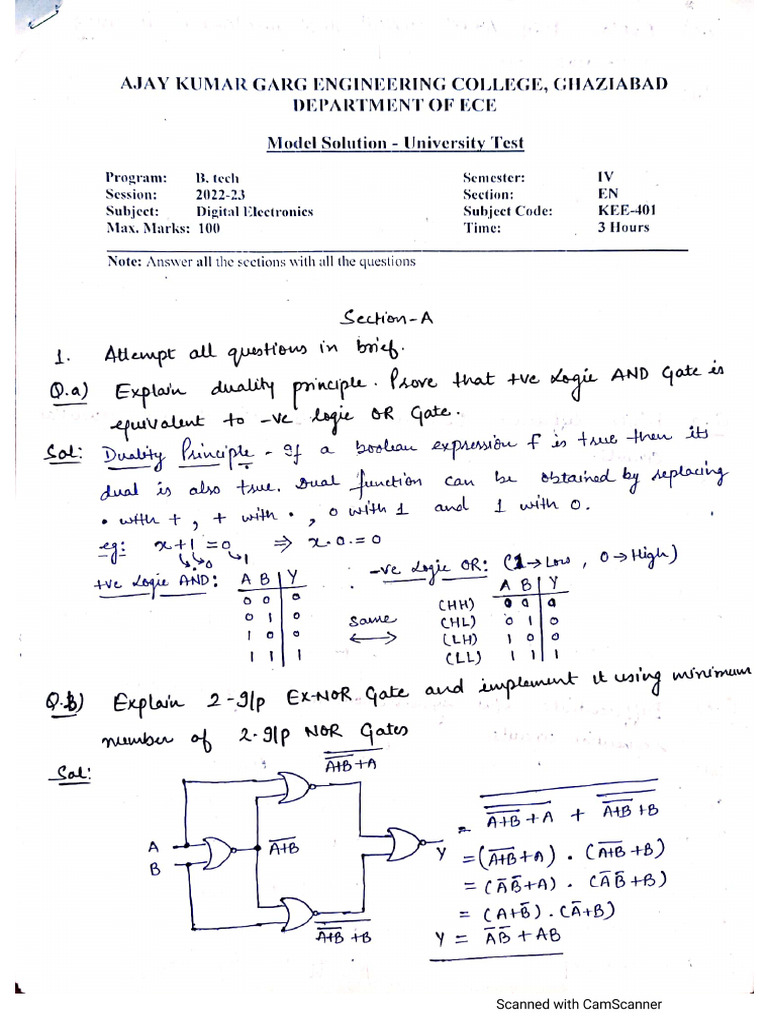 AJAY KUMAR GARG ENGINEERING COLLEGE, GHAZIABAD
DEPARTMENT OF ECE
Model Solution - University Test
Program: B. tech Semester: IV
Session: 2022-23 Section: EN
Subject: Digital Electronics Subject Code: KEE-401
Max. Marks: 100 Time: 3 Hours
Note: Answer all the sections with all the questions
Section-A
1. Attempt all questions in brief.
Q.a) Explain duality principle. Prove that +ve Logic AND Gate is
equivalent to -ve logic OR Gate.
Sol: Duality Principle - If a boolean expression f is true then its
dual is also true. Dual function can be obtained by replacing
• with +, + with •, 0 with 1 and 1 with 0.
eg: x+1=0 ⇒ x.0.=0
↘ ↘0 ↘1
+ve Logic AND: A B | Y
0 0 | 0
0 1 | 0
1 0 | 0
1 1 | 1
same
⟷
-ve Logic OR: (1→Low, 0→High)
A B | Y
(HH) 0 0 0
(HL) 0 1 0
(LH) 1 0 0
(LL) 1 1 1
Q.b) Explain 2-I/p EX-NOR Gate and implement it using minimum
number of 2-I/p NOR Gates
Sol:
A̅+̅B̅+A
A
B
A̅+̅B̅
Y
A̅+̅B̅+B
= A̅+̅B̅+A + A̅+̅B̅+B
= (A̅+̅B̅+A) . (A̅+̅B̅+B)
= (A̅B̅+A) . (A̅B̅+B)
= (A+B̅).(A̅+B)
Y = A̅B̅ + AB
Scanned with CamScanner